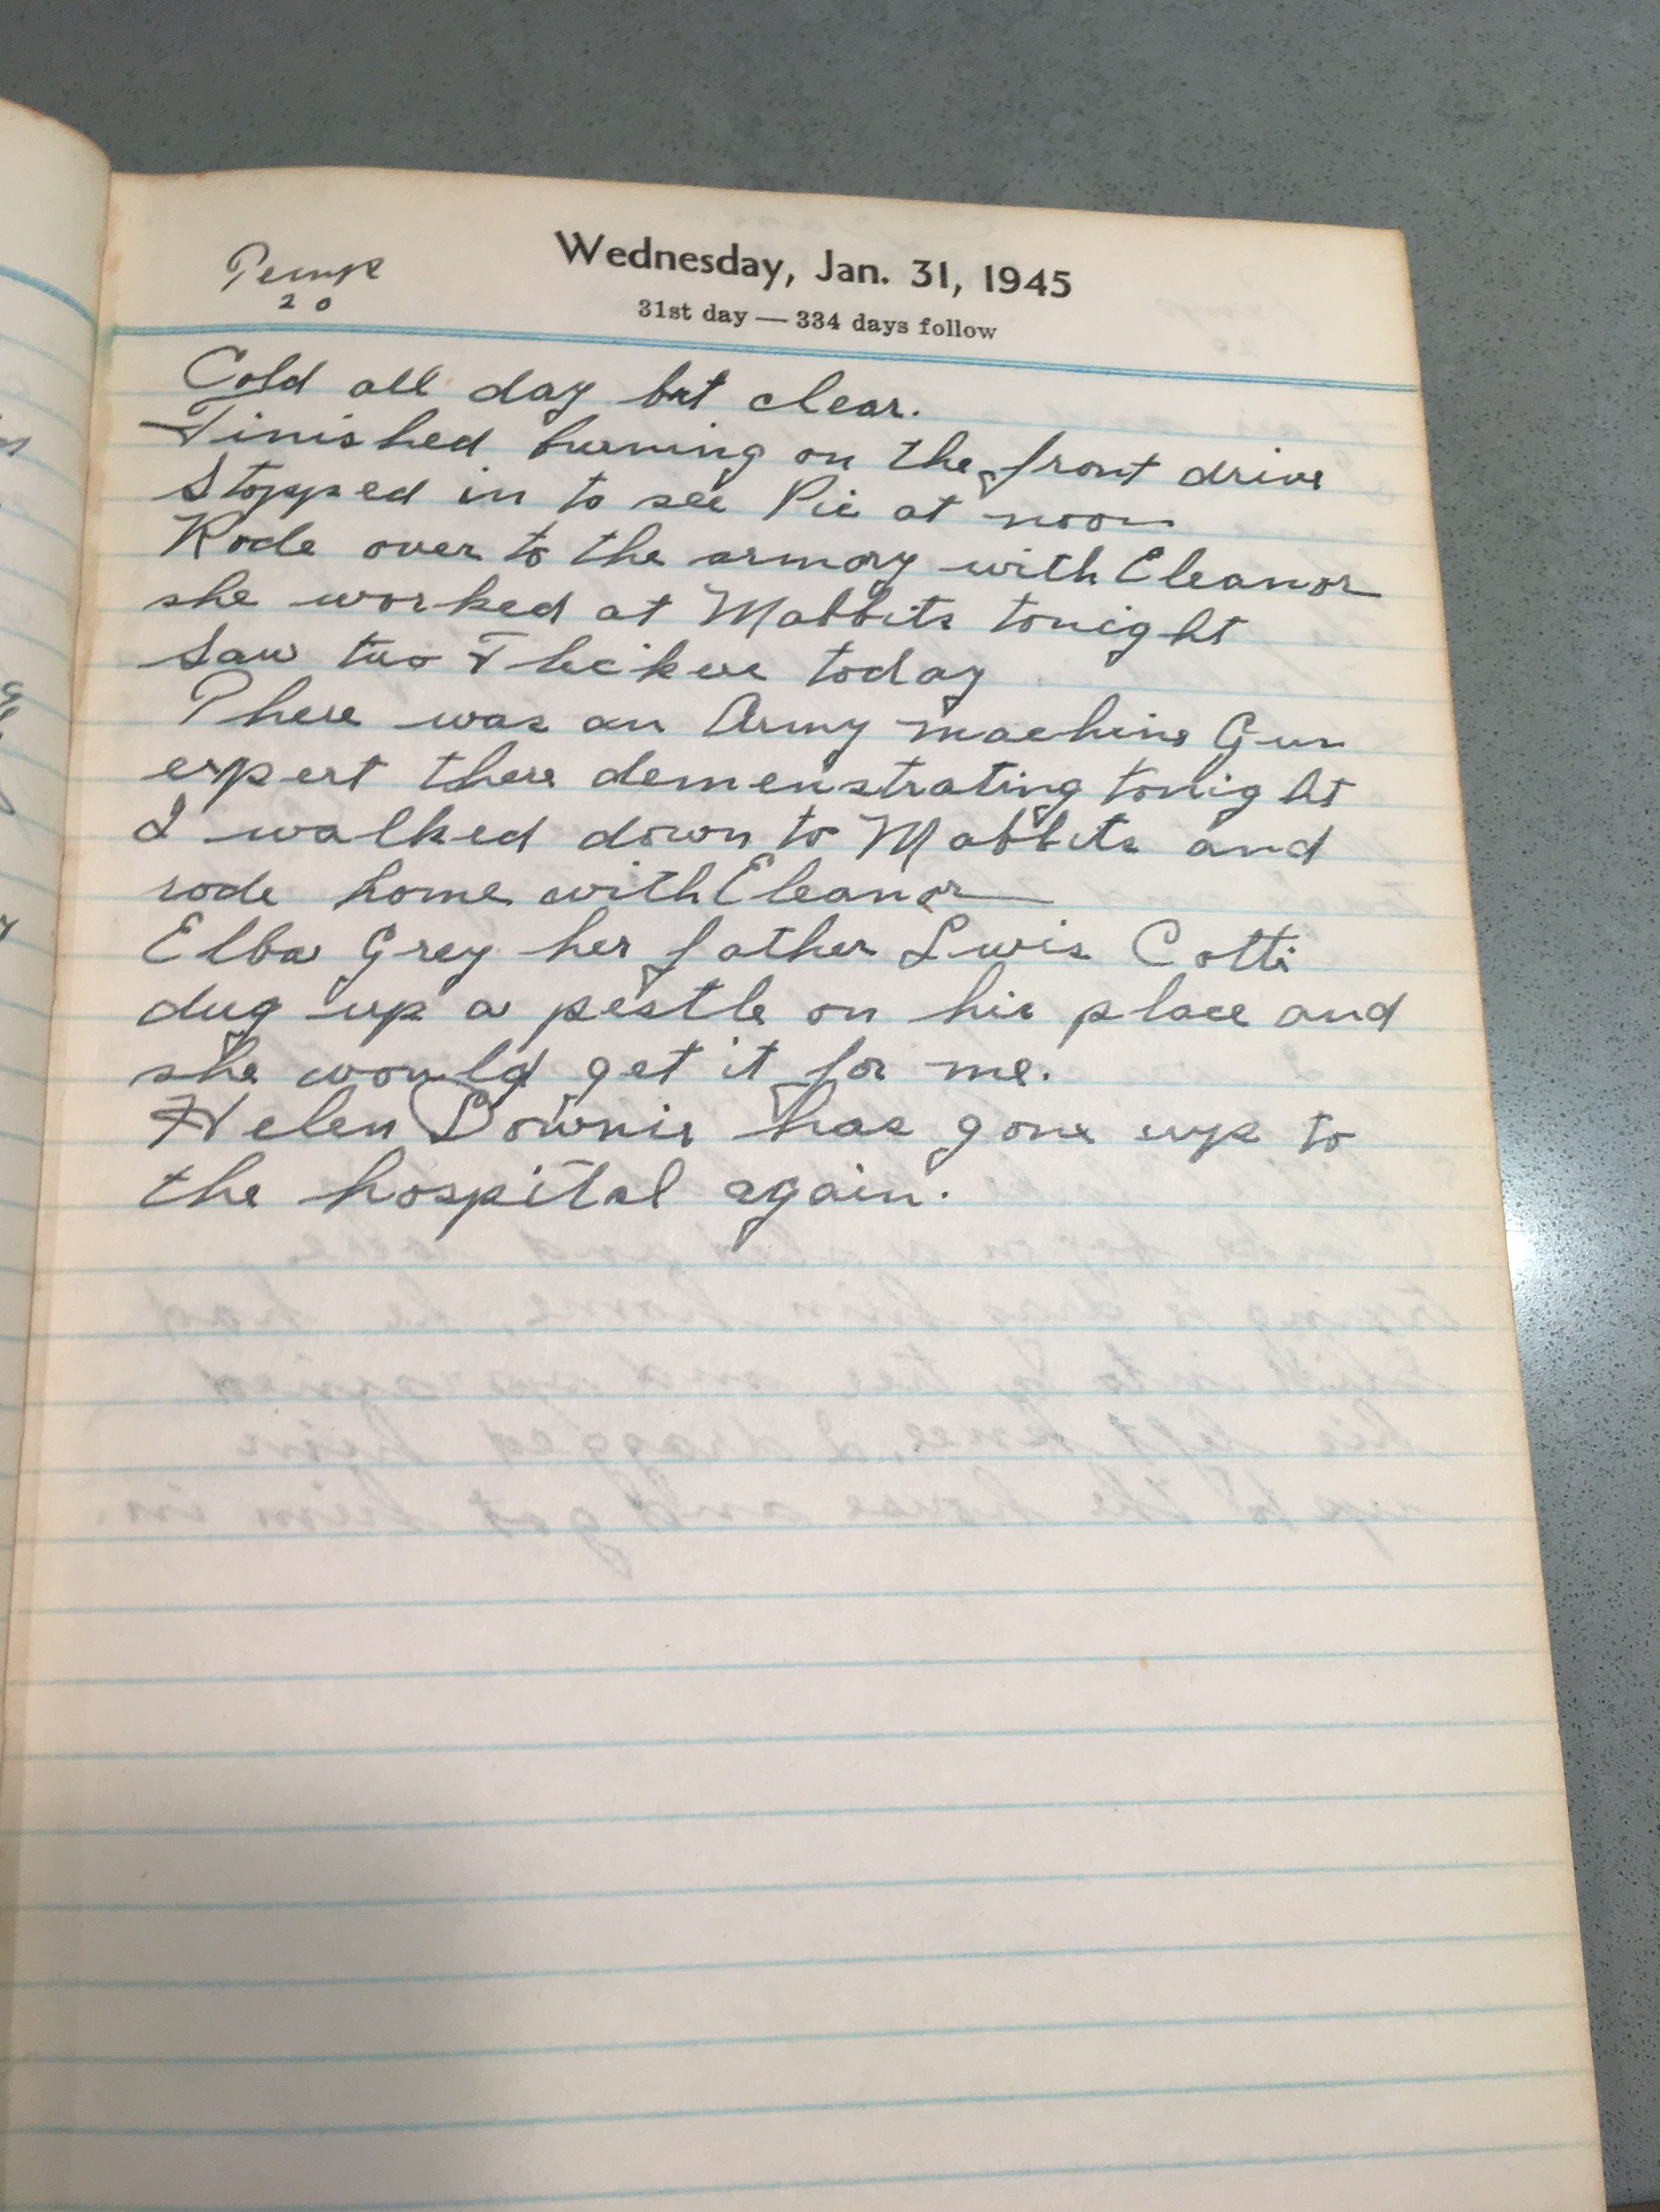 Temp
20
Wednesday, Jan. 31, 1945
31st day — 334 days follow
Cold all day but clear.
Finished burning on the front drive
Stopped in to see Pic at noon
Rode over to the armory with Eleanor
she worked at Mabbits tonight
Saw two today
There was an Army machine Gun
expert there demenstrating tonight
I walked down to Mabbits and
rode home with Eleanor
Elba Grey her father Lwis Cotti
dug up a pestle on his place and
she would get it for me.
Helen Downis has gone up to
the hospital again.